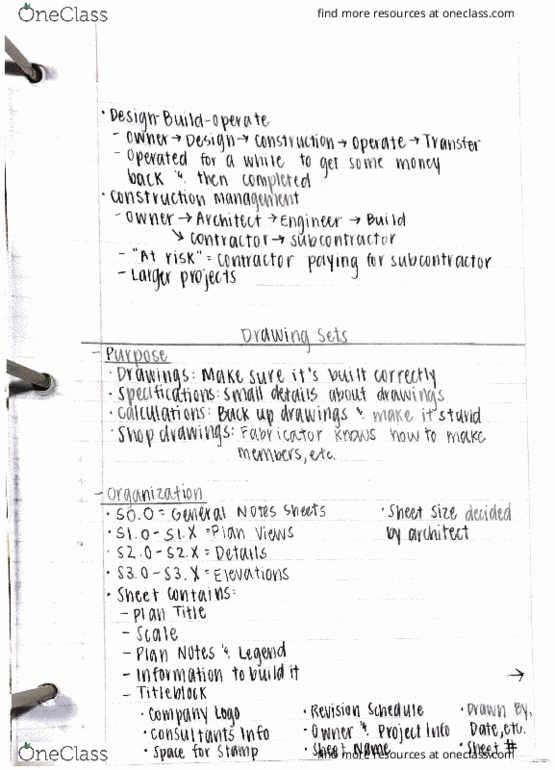 OneClass
find more resources at oneclass.com
· Design-Build-operate
- owner → Design → construction → Operate → Transfer
- Operated for a while to get some money
back & then completed
· Construction Management
- Owner → Architect → Engineer → Build
↘ contractor → subcontractor
- "At risk" = contractor paying for subcontractor
- Larger projects
Drawing Sets
- Purpose
· Drawings: Make sure it's built correctly
· Specifications: Small details about drawings
· Calculations: Back up drawings & make it stand
· Shop drawings: Fabricator knows how to make
members, etc.
- Organization
· S0.0 = General Notes Sheets
· S1.0 - S1.X = Plan Views
· S2.0 - S2.X = Details
· S3.0 - S3.X = Elevations
· Sheet size decided
by architect
· Sheet contains:
- Plan Title
- Scale
- Plan Notes & Legend
- Information to build it
→
- Titleblock
· Company Logo
· Consultants Info
· Space for Stamp
· Revision Schedule
· Owner & Project Info
· Sheet Name
· Drawn By,
Date, etc.
· Sheet #
OneClass
find more resources at oneclass.com